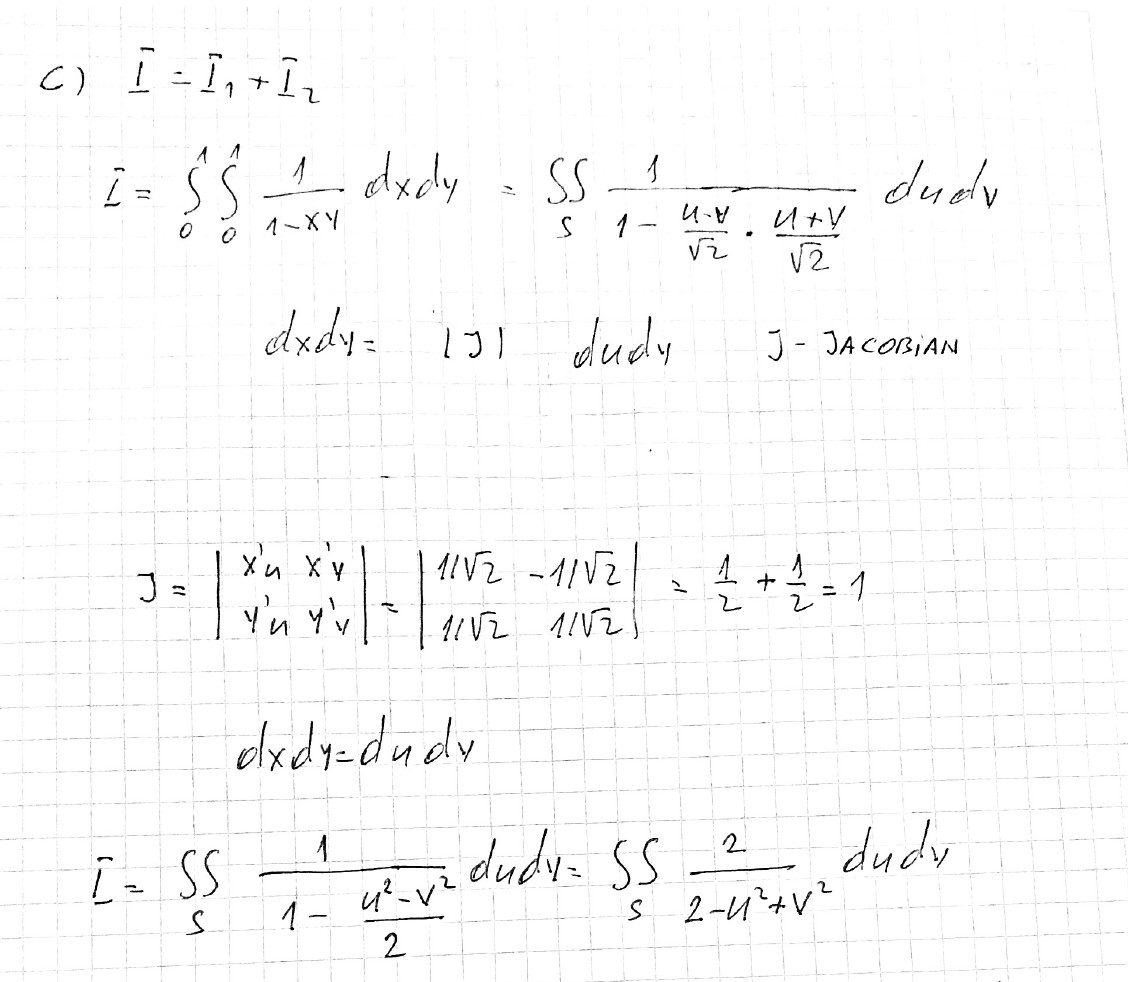 C) I = I₁ + I₂
I = ∫₀¹ ∫₀¹ 1/(1-xy) dxdy = ∬_S 1/(1 - (u-v)/√2 · (u+v)/√2) dudv
dxdy = |J| dudv J - JACOBIAN
J = | x'u x'v | = | 1/√2 -1/√2 | = 1/2 + 1/2 = 1
| y'u y'v | | 1/√2 1/√2 |
dxdy = dudv
I = ∬_S 1/(1 - (u²-v²)/2) dudv = ∬_S 2/(2-u²+v²) dudv